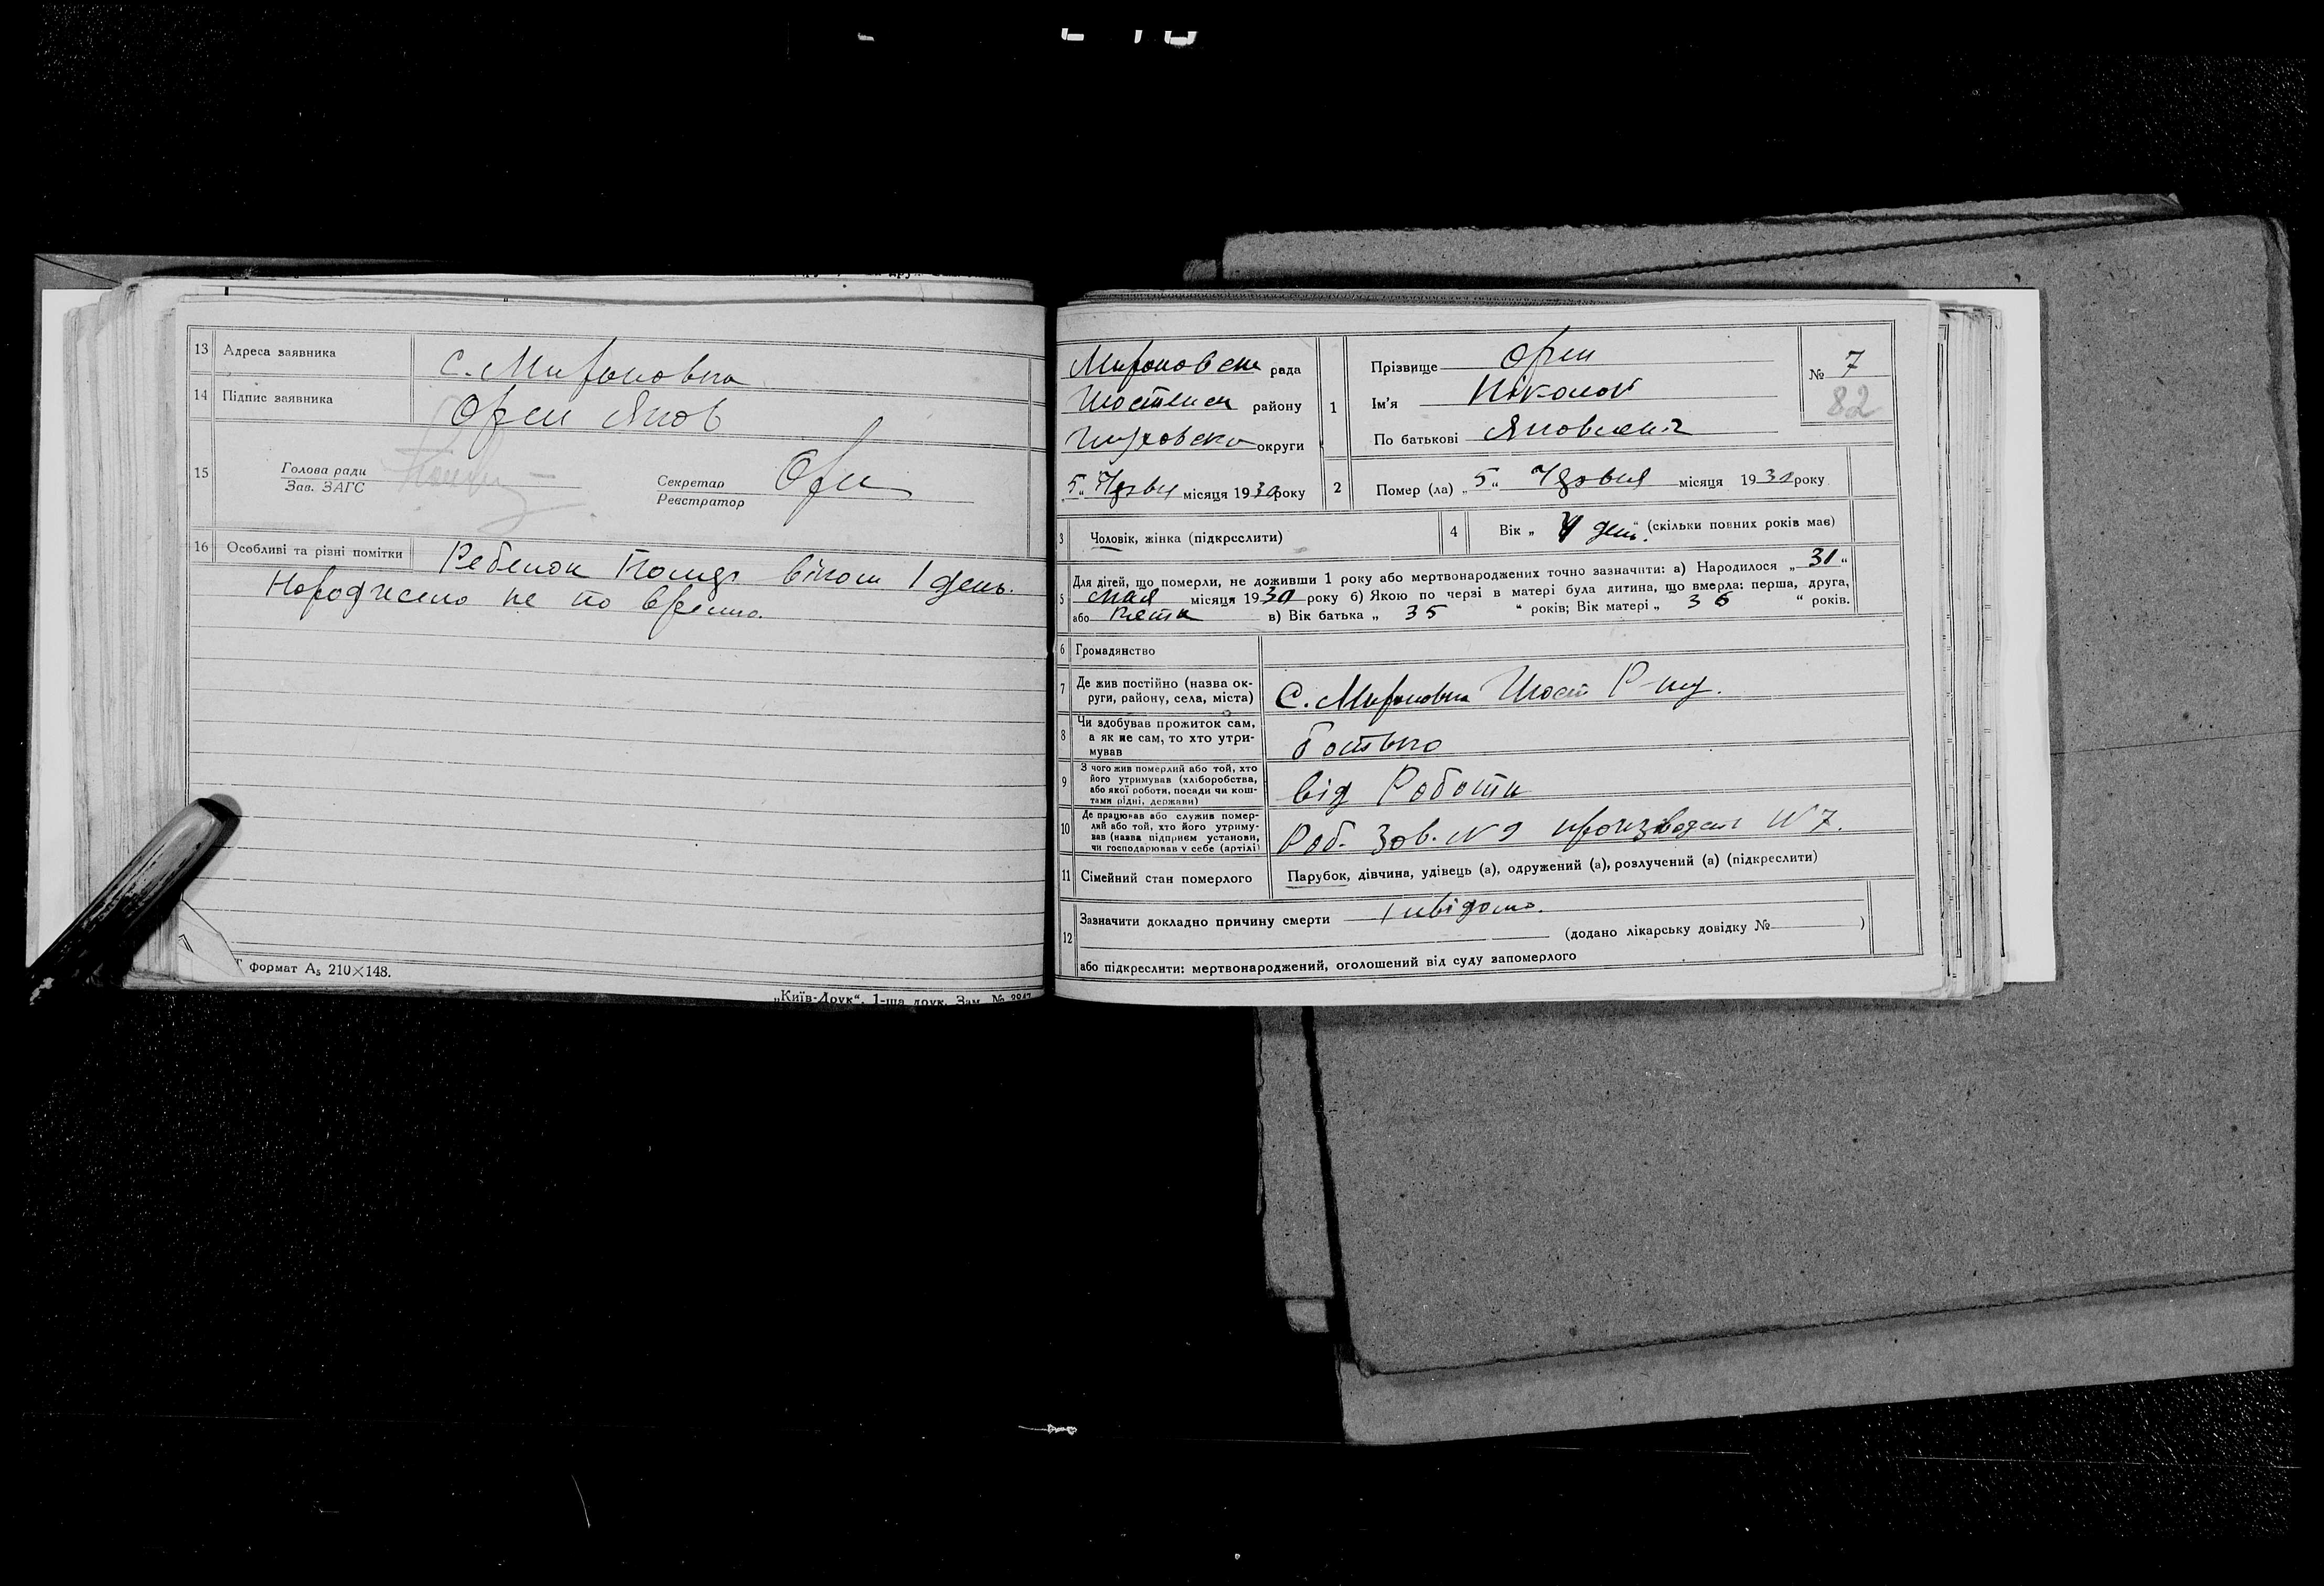 13 Адреса заявника С. Мироновка
14 Підпис заявника Орел Яков
15 Голова ради
Зав. ЗАГС
Секретар
Реєстратор
16 Особливі та різні помітки Ребенок віком 1 день.
Народжено не по время.
формат А5 210×148.
„Київ-Друк“, 1-ша друк. Зам. №
Мироновська рада
району
Глуховська округи
„5“ місяця 1930 року
1 Прізвище
Ім'я Ніколай
По батькові Яковлевич
№ 7
82
2 Помер (ла) „5“ місяця 1930 року
3 Чоловік, жінка (підкреслити)
4 Вік „ день“ (скільки повних років має)
5 Для дітей, що померли, не доживши 1 року або мертвонароджених точно зазначити: а) Народилося „31“
мая місяця 1930 року б) Якою по черзі в матері була дитина, що вмерла: перша, друга,
або в) Вік батька „35“ років; Вік матері „36“ років.
6 Громадянство
7 Де жив постійно (назва ок-
руги, району, села, міста) С. Мироновка Шост Р-ну.
8 Чи здобував прожиток сам,
а як не сам, то хто утри-
мував батько
9 З чого жив померлий або той, хто
його утримував (хліборобства,
або якої роботи, посади чи кош-
тами рідні, держави) від Роботи
10 Де працював або служив помер-
лий або той, хто його утриму-
вав (назва підприєм установи,
чи господарював у себе (артілі) Роб. Зав. №9 №7.
11 Сімейний стан померлого Парубок, дівчина, удівець (а), одружений (а), розлучений (а) (підкреслити)
12 Зазначити докладно причину смерти
(додано лікарську довідку № )
або підкреслити: мертвонароджений, оголошений від суду запомерлого